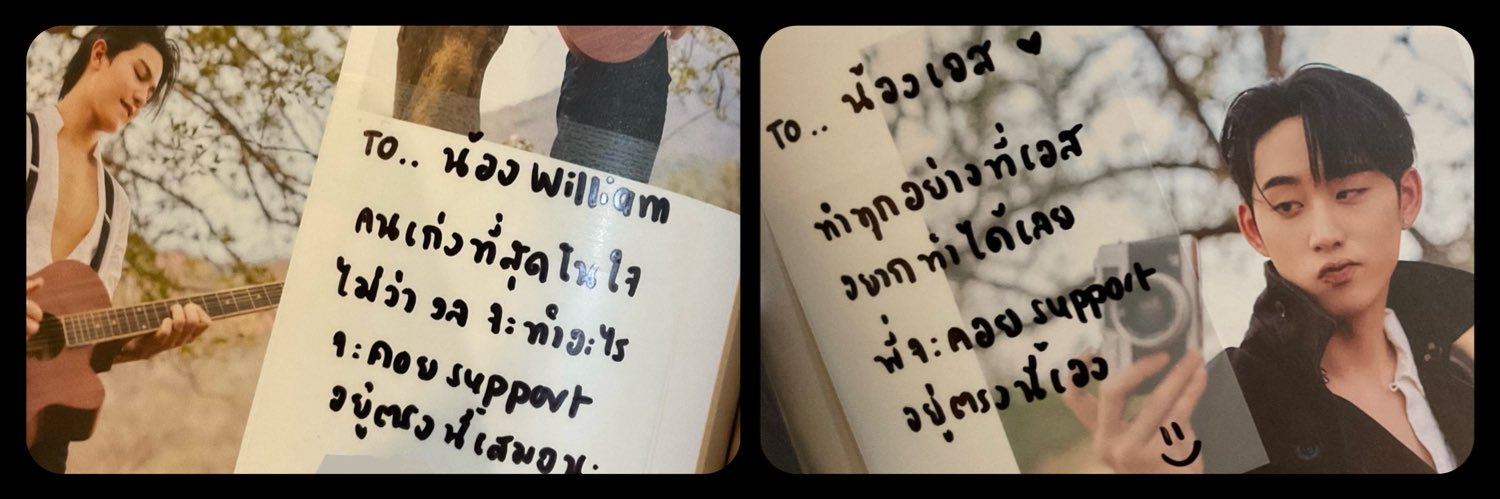 TO.. น้อง William
คนเก่งที่สุดในใจ
ไม่ว่า วล จะทำอะไร
จะคอย support
อยู่ตรงนี้เสมอนะ
TO.. น้องเอส ♥
ทำทุกอย่างที่เอส
อยากทำได้เลย
พี่จะคอย support
อยู่ตรงนี้เอง